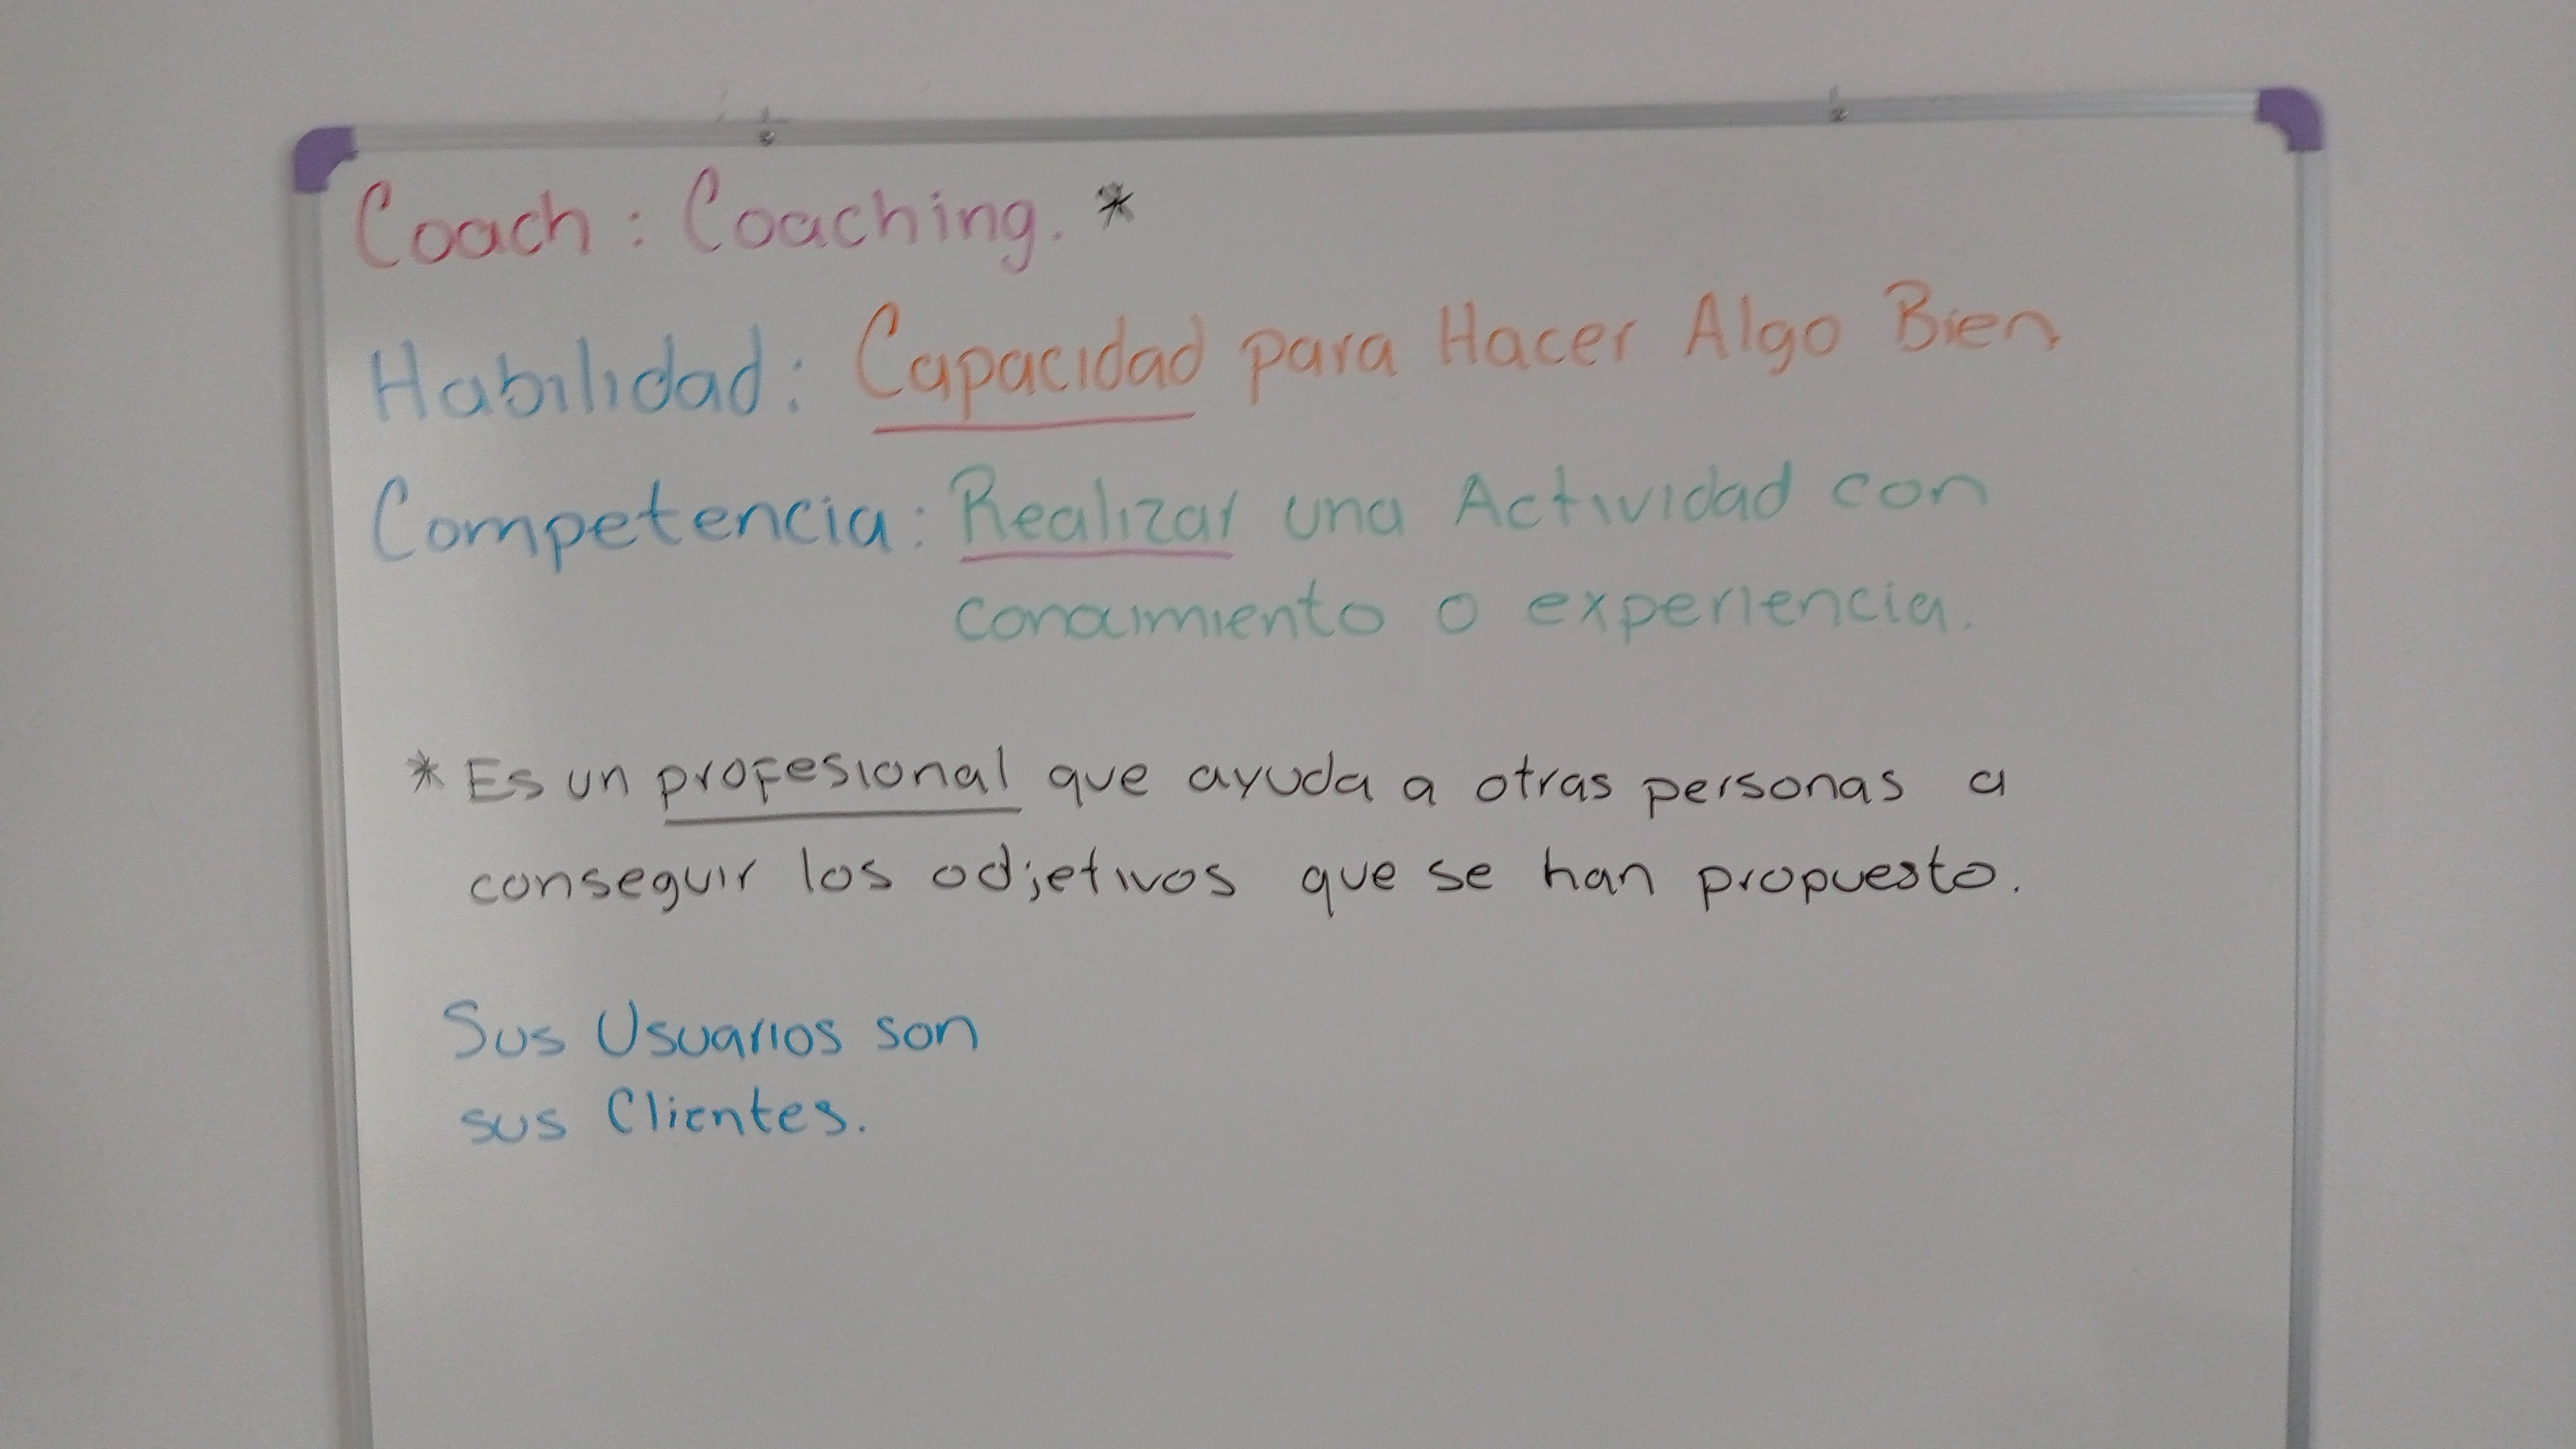 Coach : Coaching. *
Habilidad : Capacidad para Hacer Algo Bien.
Competencia : Realizar una Actividad con
conocimiento o experiencia.
* Es un profesional que ayuda a otras personas a
conseguir los odjetivos que se han propuesto.
Sus Usuarios son
sus Clientes.